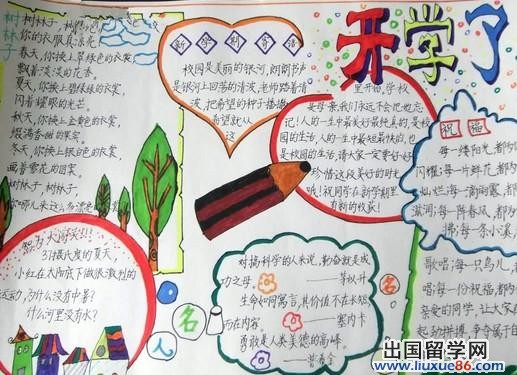 开学了
树林子
树林子,树林子,
你的衣服真漂亮
春天,你换上翠绿色的衣裳
飘着淡淡的花香。
夏天,你换上碧绿绿的衣裳,
闪着耀眼的光芒。
秋天,你换上金黄的衣裳
冬天,你换上银白色的衣裳
树林子,树林子,
新学期寄语
校园是美丽的银河,朗朗书声
是银河上回荡的清波,老师踏着清
波,把希望的种子播撒
希望就从
这
里开始,学校
是母亲,我们永远不会把她忘
记!人的一生中最美好最纯真的,是校
园的生活,人的一生中最短最快的,也
是校园的生活,请大家一定要好好
珍惜这段美好的时光
哦!祝同学在新学期里
有新的收获!
祝福
每一缕阳光,都
闪耀;每一片鲜花,都
灿烂;每一滴雨露,都
滋润;每一阵春风,都为
拂;每一条小溪,
歌唱;每一只鸟儿,
唱;每一份祝福,都为
亲爱的同学,让大家在
智力大闯关!!
31摄氏度的夏天,
小红在太阳底下做很激烈的
运动,为什么没有中暑?
什么河里没有水?
名人名
对搞科学的人来说,勤奋就是成
功之母。
——茅以升
生命如同寓言,其价值不在长短
而在内容。
——塞内卡
勇敢是人类美德的高峰。
——普希金
出国留学网
www.liuxue86.com